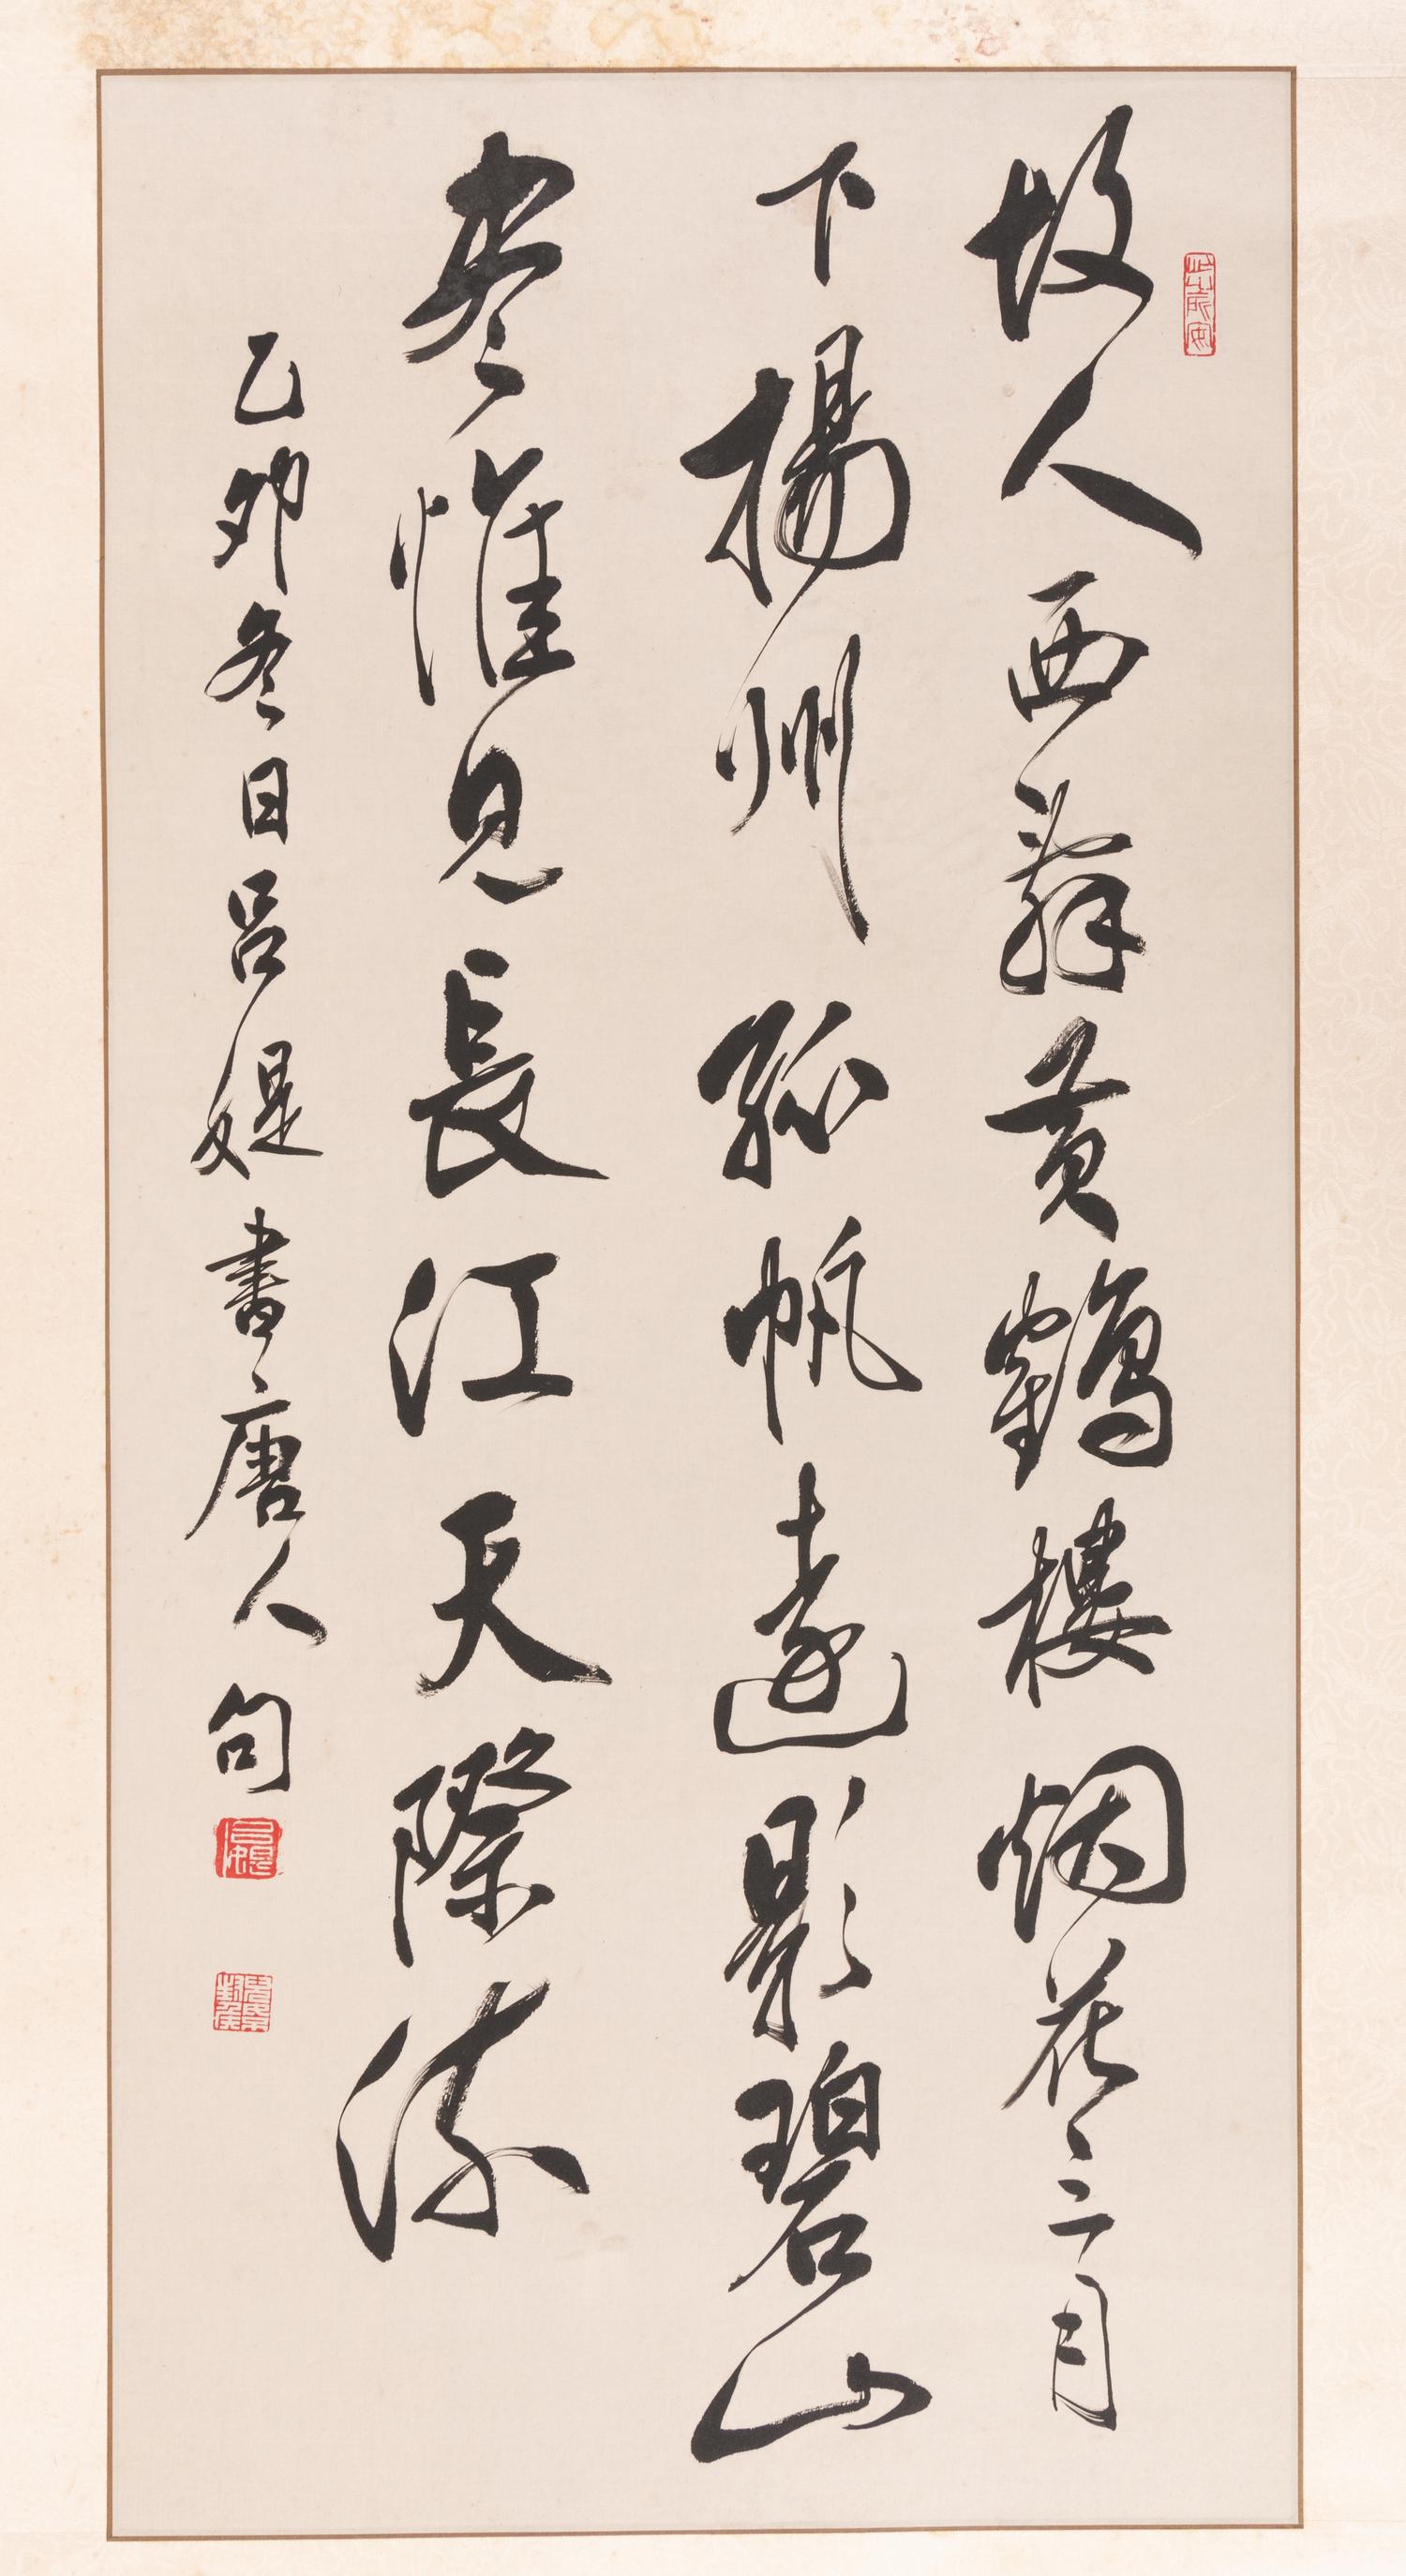 故人西辭黃鶴樓烟花三月
下揚州孤帆遠影碧山
盡惟見長江天際流
乙卯冬日呂媞書唐人句